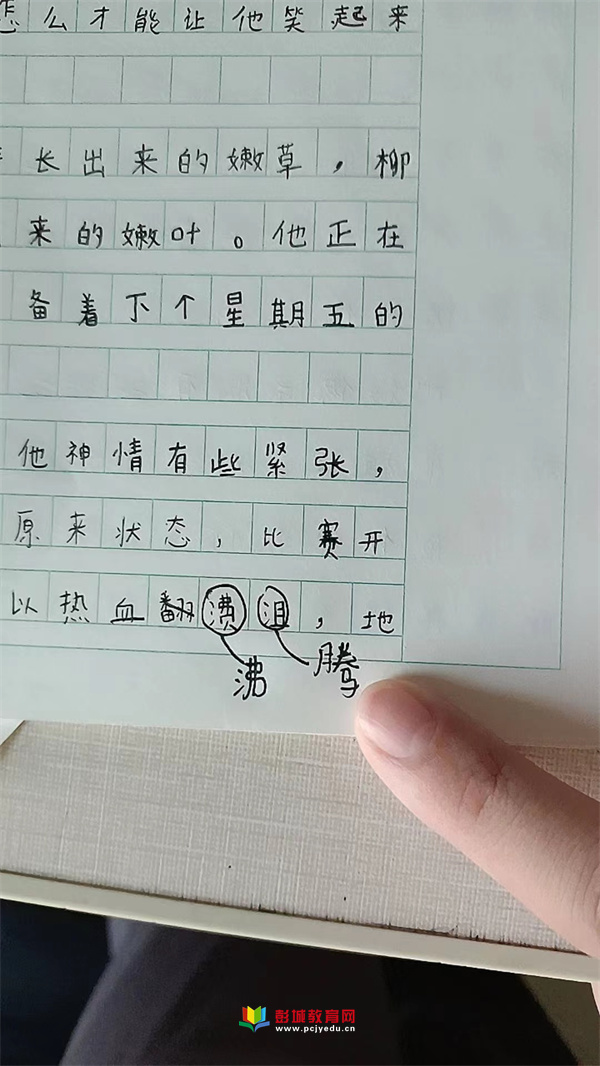 怎么才能让他笑起来
长出来的嫩草，柳
来的嫩叶。他正在
备着下个星期五的
他神情有些紧张，
原来状态，比赛开
以热血翻沸泪，地
沸 腾
彭城教育网
www.pcjyedu.cn